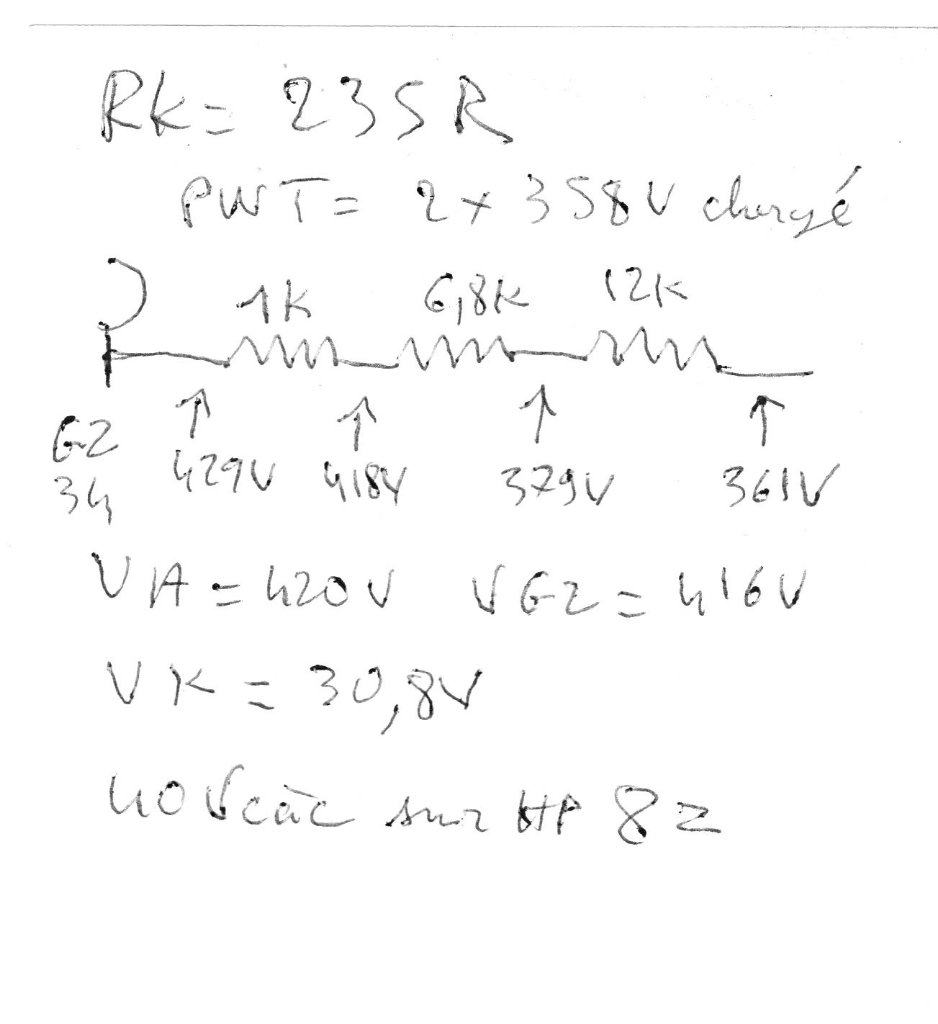 Rk = 235R
PWT = 2 x 358V chargé
1K 6,8K 12K
GZ
34
429V 418V 379V 361V
VA = 420V VG2 = 416V
VK = 30,8V
40Vcàc sur HP 8Ω